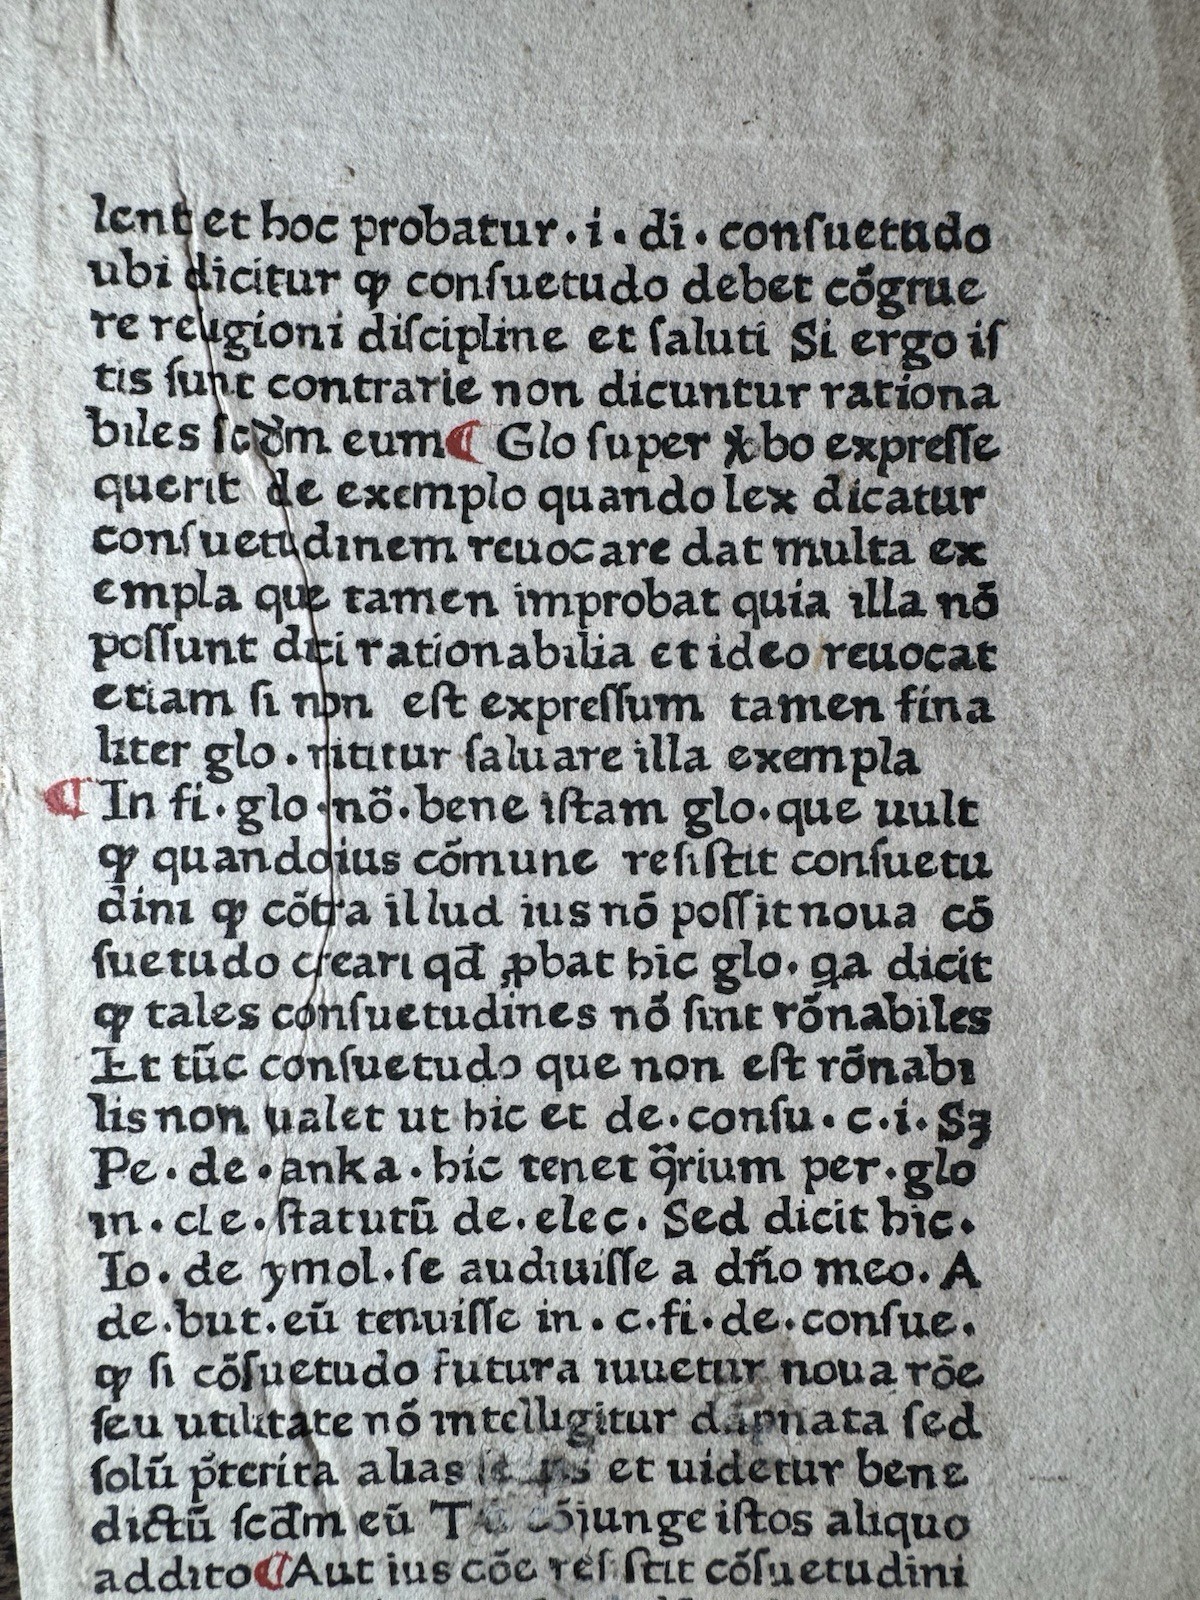 lent et hoc probatur . i . di . conſuetudo
ubi dicitur ꝙ conſuetudo debet cõgrue
re religioni diſcipline et ſaluti Si ergo iſ
tis ſunt contrarie non dicuntur rationa
biles ſcd̃m eum ¶ Glo ſuper ꝟbo expreſſe
querit de exemplo quando lex dicatur
conſuetudinem reuocare dat multa ex
empla que tamen improbat quia illa nõ
poſſunt dici rationabilia et ideo reuocat
etiam ſi non eſt expreſſum tamen fina
liter glo . nititur ſaluare illa exempla
¶ In fi . glo . nõ . bene iſtam glo . que uult
ꝙ quando ius cõmune reſiſtit conſuetu
dini ꝙ cõtra illud ius nõ poſſit noua cõ
ſuetudo creari qd̃ ꝓbat hic glo . qa dicit
ꝙ tales conſuetudines nõ ſint rõnabiles
Et tũc conſuetudo que non eſt rõnabi
lis non ualet ut hic et de . conſu . c . i . Sꝫ
Pe . de . anka . hic tenet ꝯ̃rium per . glo
in . cle . ſtatutũ de . elec . Sed dicit hic .
Io . de ymol . ſe audiuiſſe a dño meo . A
de . but . eũ tenuiſſe in . c . fi . de . conſue .
ꝙ ſi cõſuetudo futura iuuetur noua rõe
ſeu utilitate nõ intelligitur dãpnata ſed
ſolũ p̃terita alias et uidetur bene
dictũ ſcd̃m eũ cõiunge iſtos aliquo
addito ¶ Aut ius cõe reſiſtit cõſuetudini